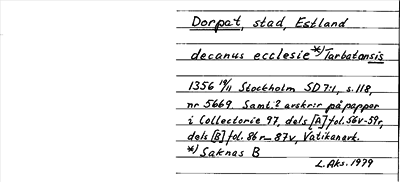 Dorpat, stad, Estland
decanus ecclesie *) Tarbatensis
1356 19/11 Stockholm SD 7:1, s. 118,
nr 5669. Saml.? avskr:r på papper
i Collectorie 97, dels [A] fol. 56v-59r,
dels [B] fol. 86r-87v, Vatikanark.
*) Saknas B
L. Aks. 1979